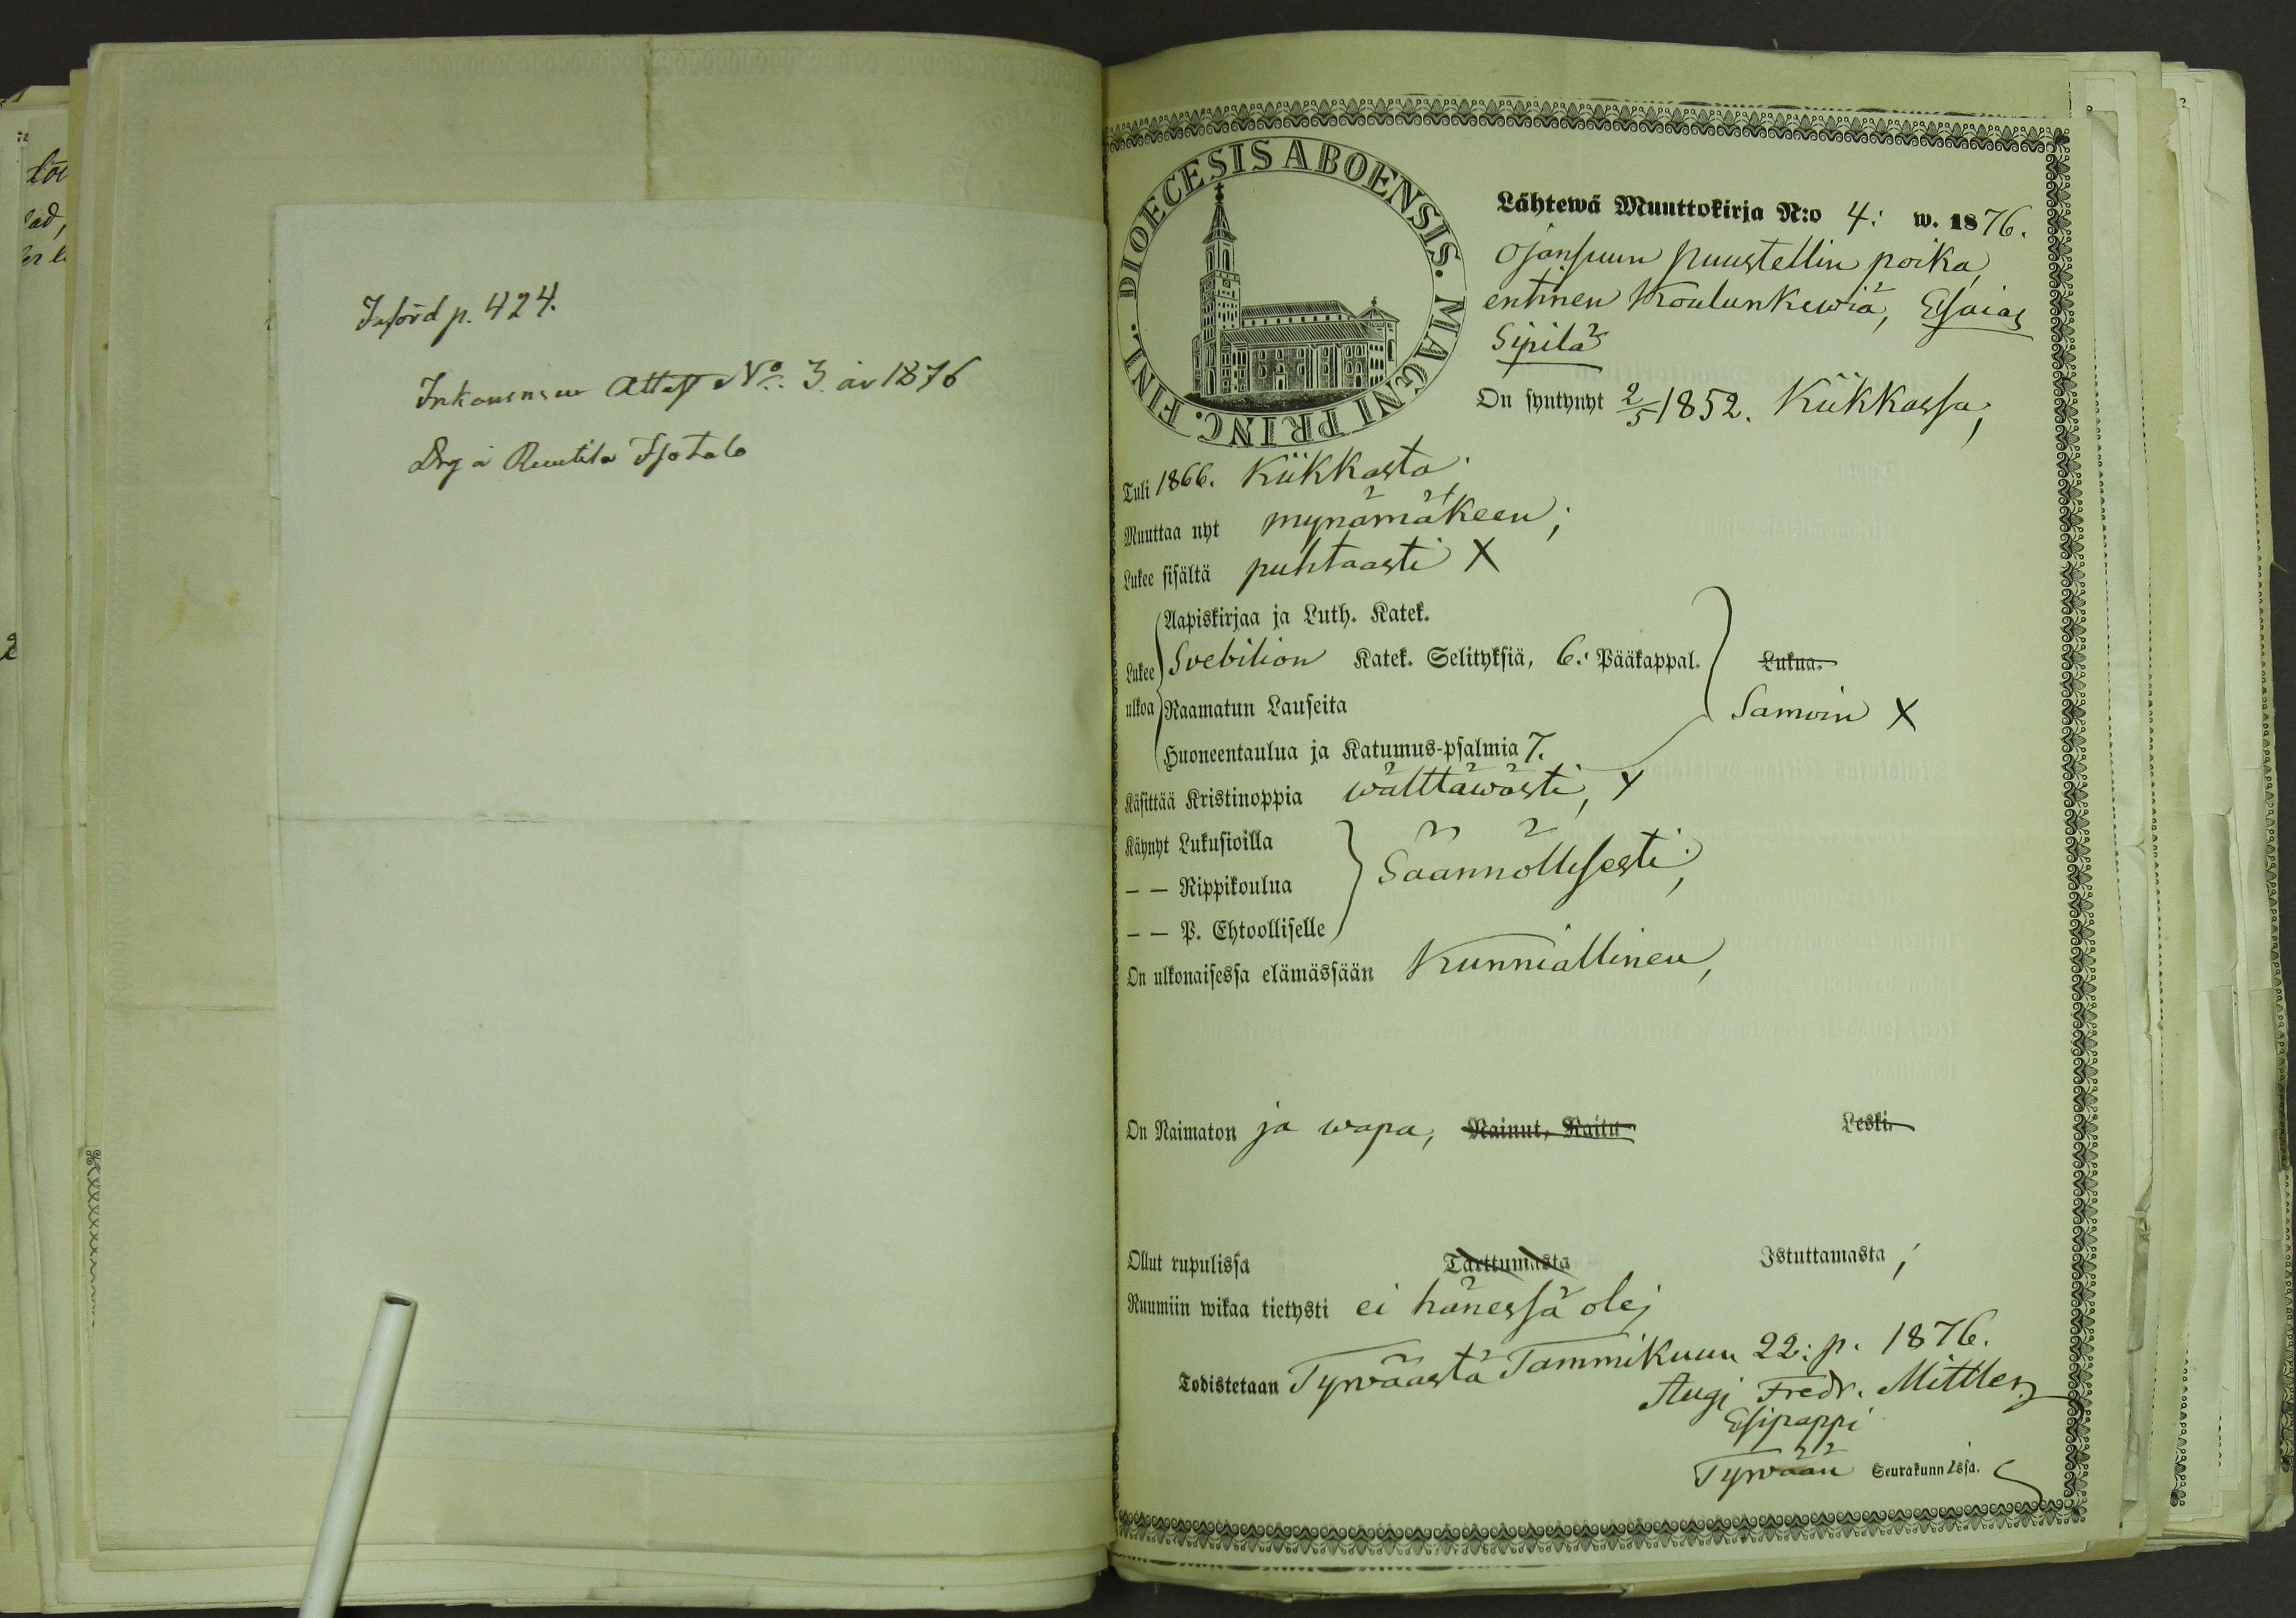 Införd p. 424.
Inkommen Attest No. 3. år 1876
Drg å Ruutila Isotalo
DIOECESIS ABOENSIS. MAGNI PRINC. FINL.
Lähtewä Muuttokirja N:o 4: w. 1876.
Ojansuun puustellin poika,
entinen Koulunkewiä, Esaias
Sipilä
On syntynyt 2/5 1852. Kiikkassa;
Tuli 1866. Kiikkasta;
Muuttaa nyt mynämäkeen;
Lukee sisältä puhtaasti X
Aapiskirjaa ja Luth. Katek.
Lukee Svebilion Katek. Selityksiä, 6: Pääkappal. Lukua.
ulkoa Raamatun Lauseita Samoin X
Huoneentaulua ja Katumus-psalmia 7.
Käsittää Kristinoppia wälttäwästi, X
Käynyt Lukusioilla
— — Rippikoulua Säännöllisesti;
— — P. Ehtoolliselle
On ulkonaisessa elämässään Kunniallinen,
On Naimaton ja wapa, Nainut, Raitu Leski.
Ollut rupulissa Tarttumasta Istuttamasta;
Ruumiin wikaa tietysti ei hänessä ole;
Todistetaan Tyrväästä Tammikuun 22: p. 1876.
Aug. Fredr. Mittler
Esipappi
Tyrvään Seurakunnassa.